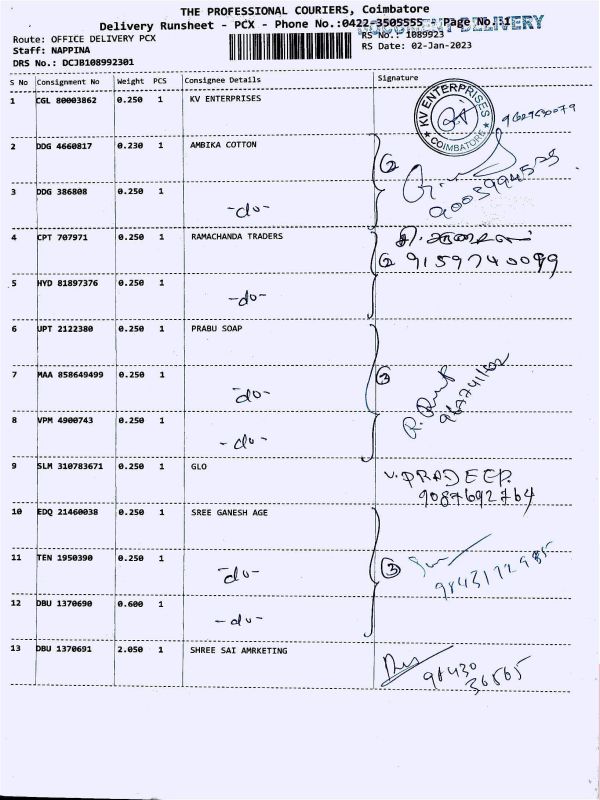 THE PROFESSIONAL COURIERS, Coimbatore
Delivery Runsheet - PCX - Phone No.:0422-3505555 Page No.:1
DOCUMENT DELIVERY
Route: OFFICE DELIVERY PCX RS No.: 1089923
Staff: NAPPINA RS Date: 02-Jan-2023
DRS No.: DCJB108992301
S No Consignment No Weight PCS Consignee Details Signature
1 CGL 80003862 0.250 1 KV ENTERPRISES
KV ENTERPRISES
COIMBATORE
2 DDG 4660817 0.230 1 AMBIKA COTTON
2
3 DDG 386808 0.250 1 -do-
4 CPT 707971 0.250 1 RAMACHANDA TRADERS
2 9159740099
5 HYD 81897376 0.250 1 -do-
6 UPT 2122380 0.250 1 PRABU SOAP
7 MAA 858649499 0.250 1 -do-
3
8 VPM 4900743 0.250 1 -do-
9 SLM 310783671 0.250 1 GLO V. PRADEEP.
9087692764
10 EDQ 21460038 0.250 1 SREE GANESH AGE
11 TEN 1950390 0.250 1 -do-
3
12 DBU 1370690 0.600 1 -do-
13 DBU 1370691 2.050 1 SHREE SAI AMRKETING
98430
36565